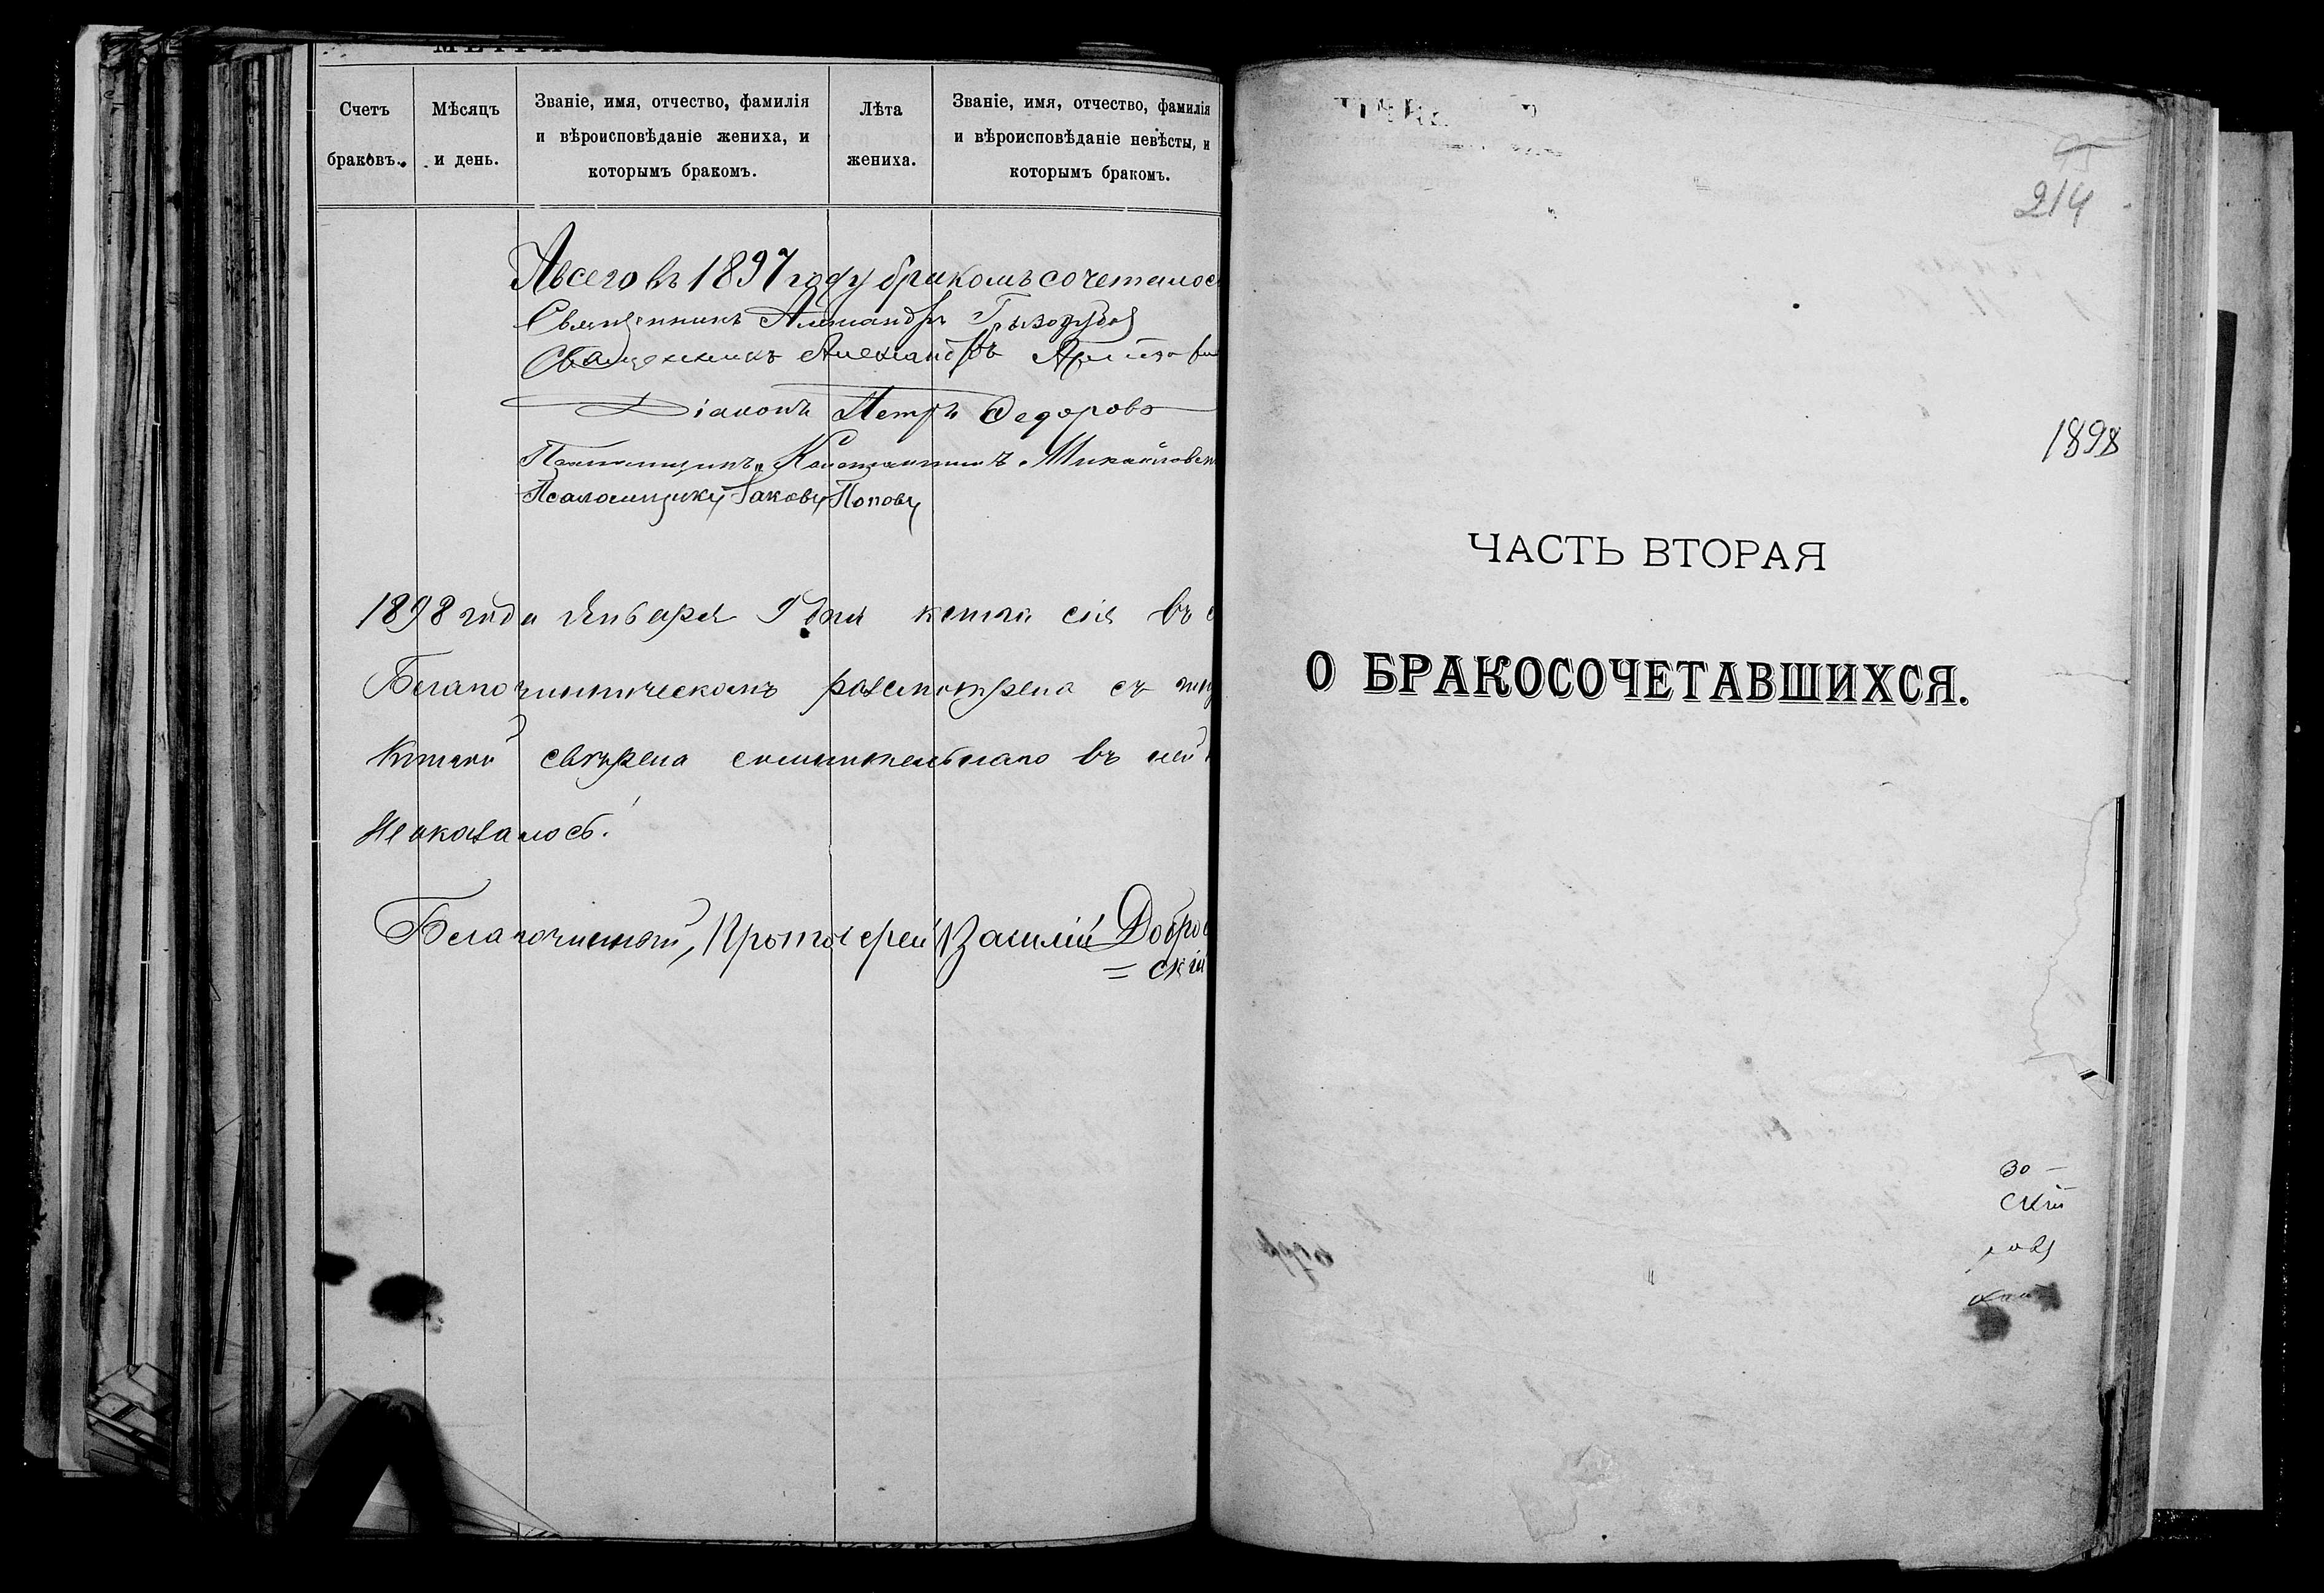 Счетъ
браковъ.
Мѣсяцъ
и день.
Званіе, имя, отчество, фамилія
и вѣроисповѣданіе жениха, и
которымъ бракомъ.
Лѣта
жениха.
Званіе, имя, отчество, фамилія
и вѣроисповѣданіе невѣсты, и
которымъ бракомъ.
А всего въ 1897 году бракомъ сочеталос
Священникъ Александръ
Священникъ Александръ
Діаконъ Петръ Ѳедоровъ
Псаломщикъ Константинъ Михайловск
Псаломщикъ Іаковъ Поповъ
1898 года Января 9 дня книга сія въ
Благочинническомъ разсмотрена съ
книгой сверена сомнительнаго въ ней
Не оказалось.
Благочинный, Протоіерей Василій Добро
= скій
214
1898
ЧАСТЬ ВТОРАЯ
О БРАКОСОЧЕТАВШИХСЯ.
зо –
скій
ровъ